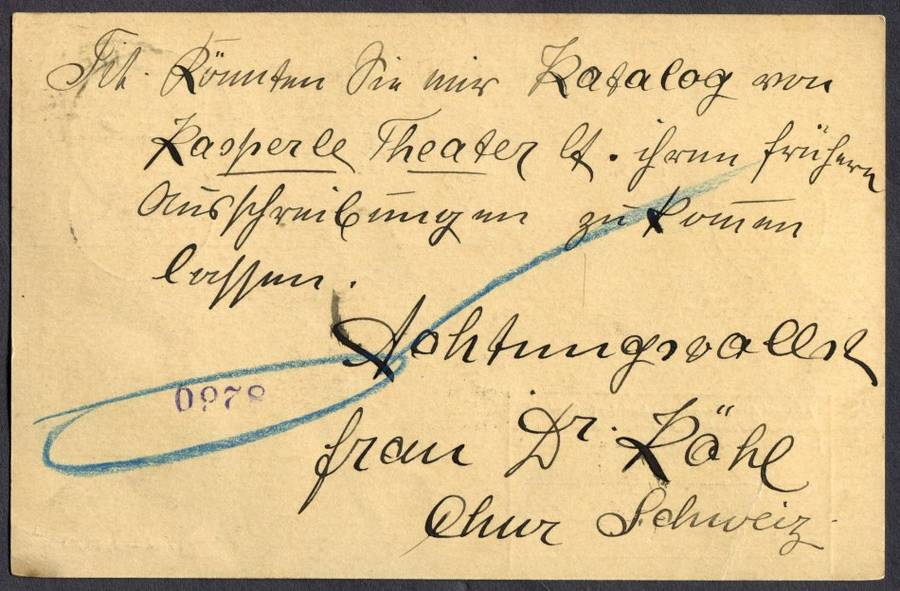 Tit. Könnten Sie mir Katalog von
Kasperle Theater lt. ihren frühern
Ausschreibungen zu kommen
lassen.
Achtungsvollst
0978
frau Dr. Köhl
Chur Schweiz.